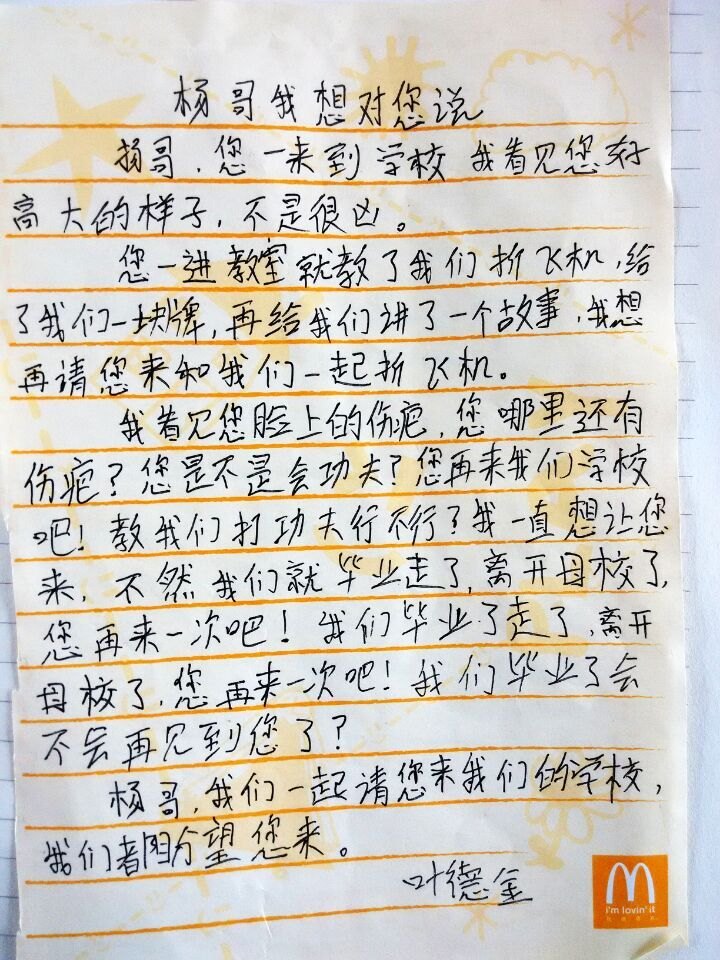 杨哥我想对您说
杨哥，您一来到学校 我看见您好
高大的样子，不是很凶。
您一进教室就教了我们折飞机，给
了我们一块牌，再给我们讲了一个故事，我想
再请您来和我们一起折飞机。
我看见您脸上的伤疤，您哪里还有
伤疤？您是不是会功夫？您再来我们学校
吧！教我们打功夫行不行？我一直想让您
来，不然我们就毕业走了，离开母校了，
您再来一次吧！我们毕业了走了，离开
母校了，您再来一次吧！我们毕业了会
不会再见到您了？
杨哥，我们一起请您来我们的学校，
我们都盼望您来。
叶德金
i'm lovin' it